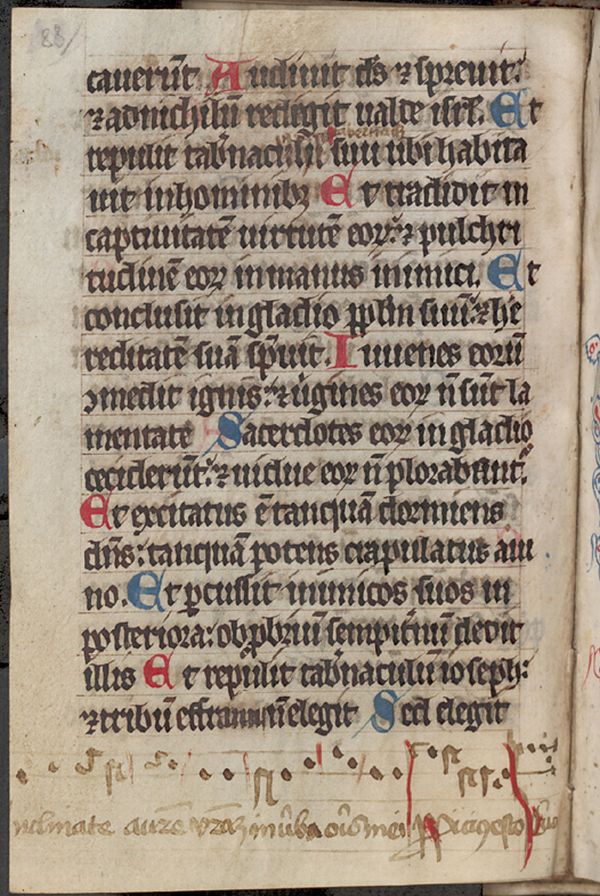 88
cauerūt Audiuit ds ⁊ spreuit:
⁊ adnichilū redegit ualde isrl. Et
repulit tabnaculū suū ubi habita
uit in hominibꝫ Et tradidit in
captiuitatē uirtutē eoꝝ: ⁊ pulchri
tudinē eoꝝ in manus inimici. Et
conclusit in gladio ꝑplm suū: ⁊ he
reditatē suā spuit. Iuuenes eorū
ꝯmedit ignis: ⁊ uigines eoꝝ n̄ sūt la
mentate Sacerdotes eoꝝ in gladio
ceciderūt: ⁊ uidue eoꝝ n̄ plorabant.
Et excitatus ē tanquā dormiens
dn̄s: tanquā potens crapulatus a ui
no. Et ꝑcussit inimicos suos in
posteriora: obꝓbriū sempitnū dedit
illis Et repulit tabnaculū ioseph:
⁊ tribū effraim n̄ elegit Sed elegit
nclinate aurē vr̄aꝫ in ūba oris mei